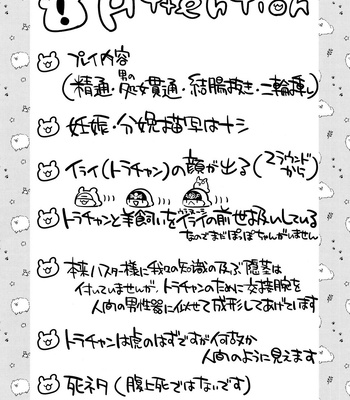 ATTENTION
プレイ内容
(精通・男の処女貫通・結腸抜き・二輪挿し)
妊娠・分娩描写はナシ
イライ(トラチャン)の顔が出る(2ラウンドから)
トラチャンと羊飼いをイライの前世扱いしている
なのでまだぽっぽちゃんがいません
本来ハスター様に我々の知識の及ぶ陰茎は
付いていませんが、トラチャンのために交接腕を
人間の男性器に似せて成形してあげています
トラチャンは虎のはずですが何故か
人間のように見えます
死ネタ(腹上死ではないです)